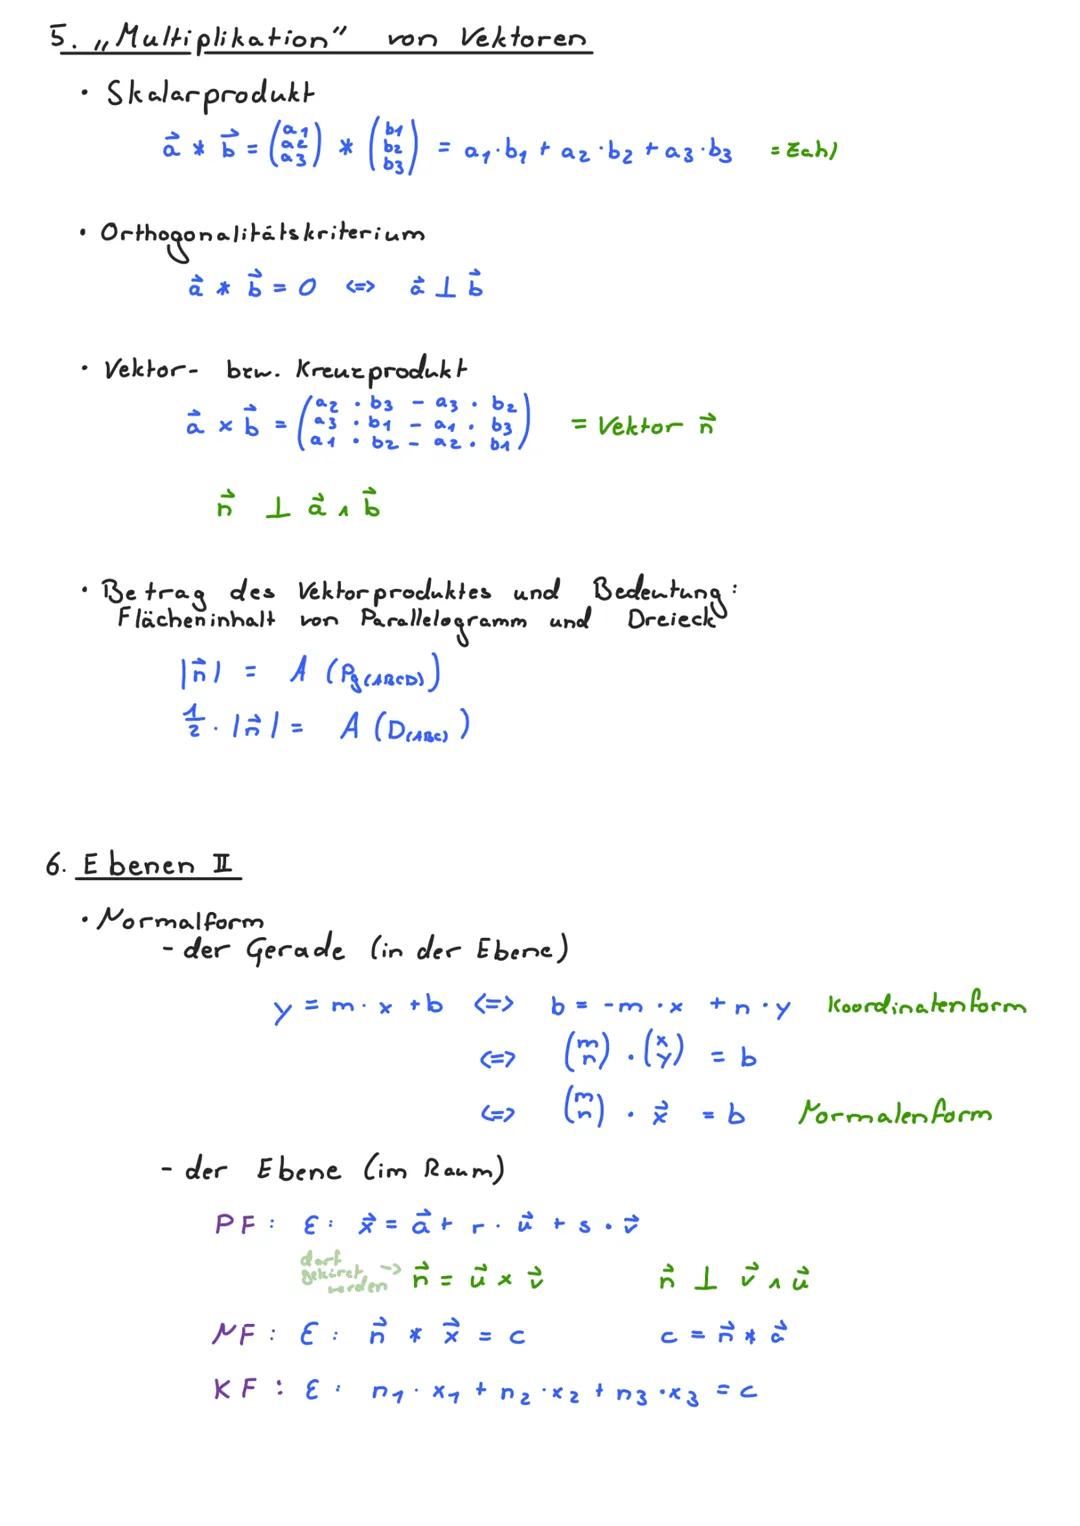 5. „Multiplikation" von Vektoren
• Skalarprodukt
a⃗ * b⃗ = (a1 a2 a3) * (b1 b2 b3) = a1·b1 + a2·b2 + a3·b3 = Zahl
• Orthogonalitätskriterium
a⃗ * b⃗ = 0 <=> a⃗ ⊥ b⃗
• Vektor- bzw. Kreuzprodukt
a⃗ × b⃗ = (a2 · b3 - a3 · b2
a3 · b1 - a1 · b3
a1 · b2 - a2 · b1) = Vektor n⃗
n⃗ ⊥ a⃗ ∧ b⃗
• Betrag des Vektorproduktes und Bedeutung:
Flächeninhalt von Parallelogramm und Dreieck
|n⃗| = A (Pg(ABCD))
1/2 · |n⃗| = A (D(ABC))
6. Ebenen II
• Normalform
- der Gerade (in der Ebene)
y = m · x + b <=> b = -m · x + n · y Koordinatenform
<=> (m n) · (x y) = b
<=> (m n) · x⃗ = b Normalenform
- der Ebene (im Raum)
PF: E: x⃗ = a⃗ + r · u⃗ + s · v⃗
darf gekürzt werden -> n⃗ = u⃗ × v⃗ n⃗ ⊥ v⃗ ∧ u⃗
NF: E: n⃗ * x⃗ = c c = n⃗ * a⃗
KF: E: n1 · x1 + n2 · x2 + n3 · x3 = c